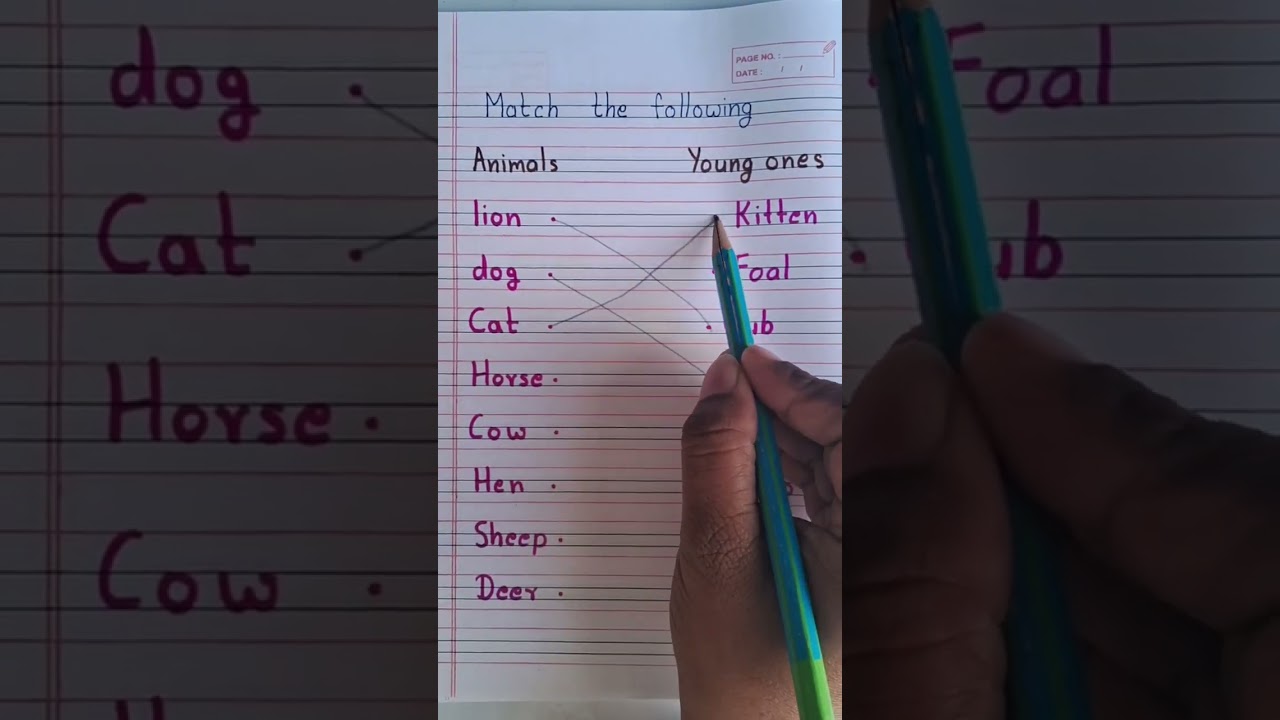 PAGE NO. :
DATE : / /
Match the following
Animals Young ones
lion Kitten
dog Foal
Cat
Horse
Cow
Hen
Sheep
Deer